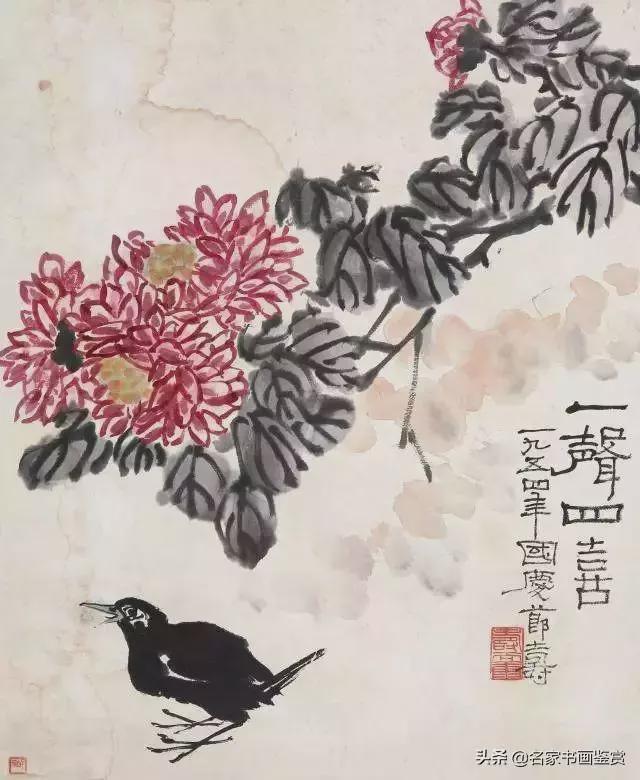 一聲四喜
一九五四年國慶節壽
头条 @名家书画鉴赏